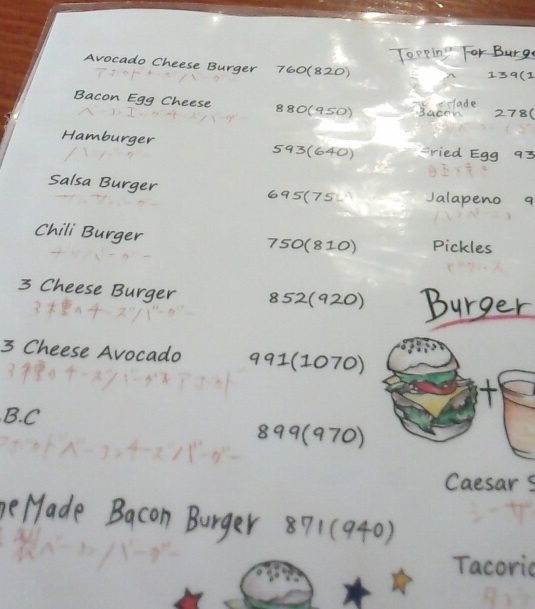 Avocado Cheese Burger 760(820)
アボカドチーズバーガー
Bacon Egg Cheese 880(950)
ベーコンエッグチーズバーガー
Hamburger 593(640)
ハンバーガー
Salsa Burger 695(75
サルサバーガー
Chili Burger 750(810)
チリバーガー
3 Cheese Burger 852(920)
3種のチーズバーガー
3 Cheese Avocado 991(1070)
3種のチーズバーガー&アボカド
.B.C 899(970)
アボカドベーコンチーズバーガー
neMade Bacon Burger 871(940)
製ベーコンバーガー
Topping For Burge
139(1
Made
Bacon 278(
Fried Egg 93
目玉焼き
Jalapeno 9
ハラペーニョ
Pickles
ピクルス
Burger
+
Caesar S
シーザ
Tacoric
タコラ